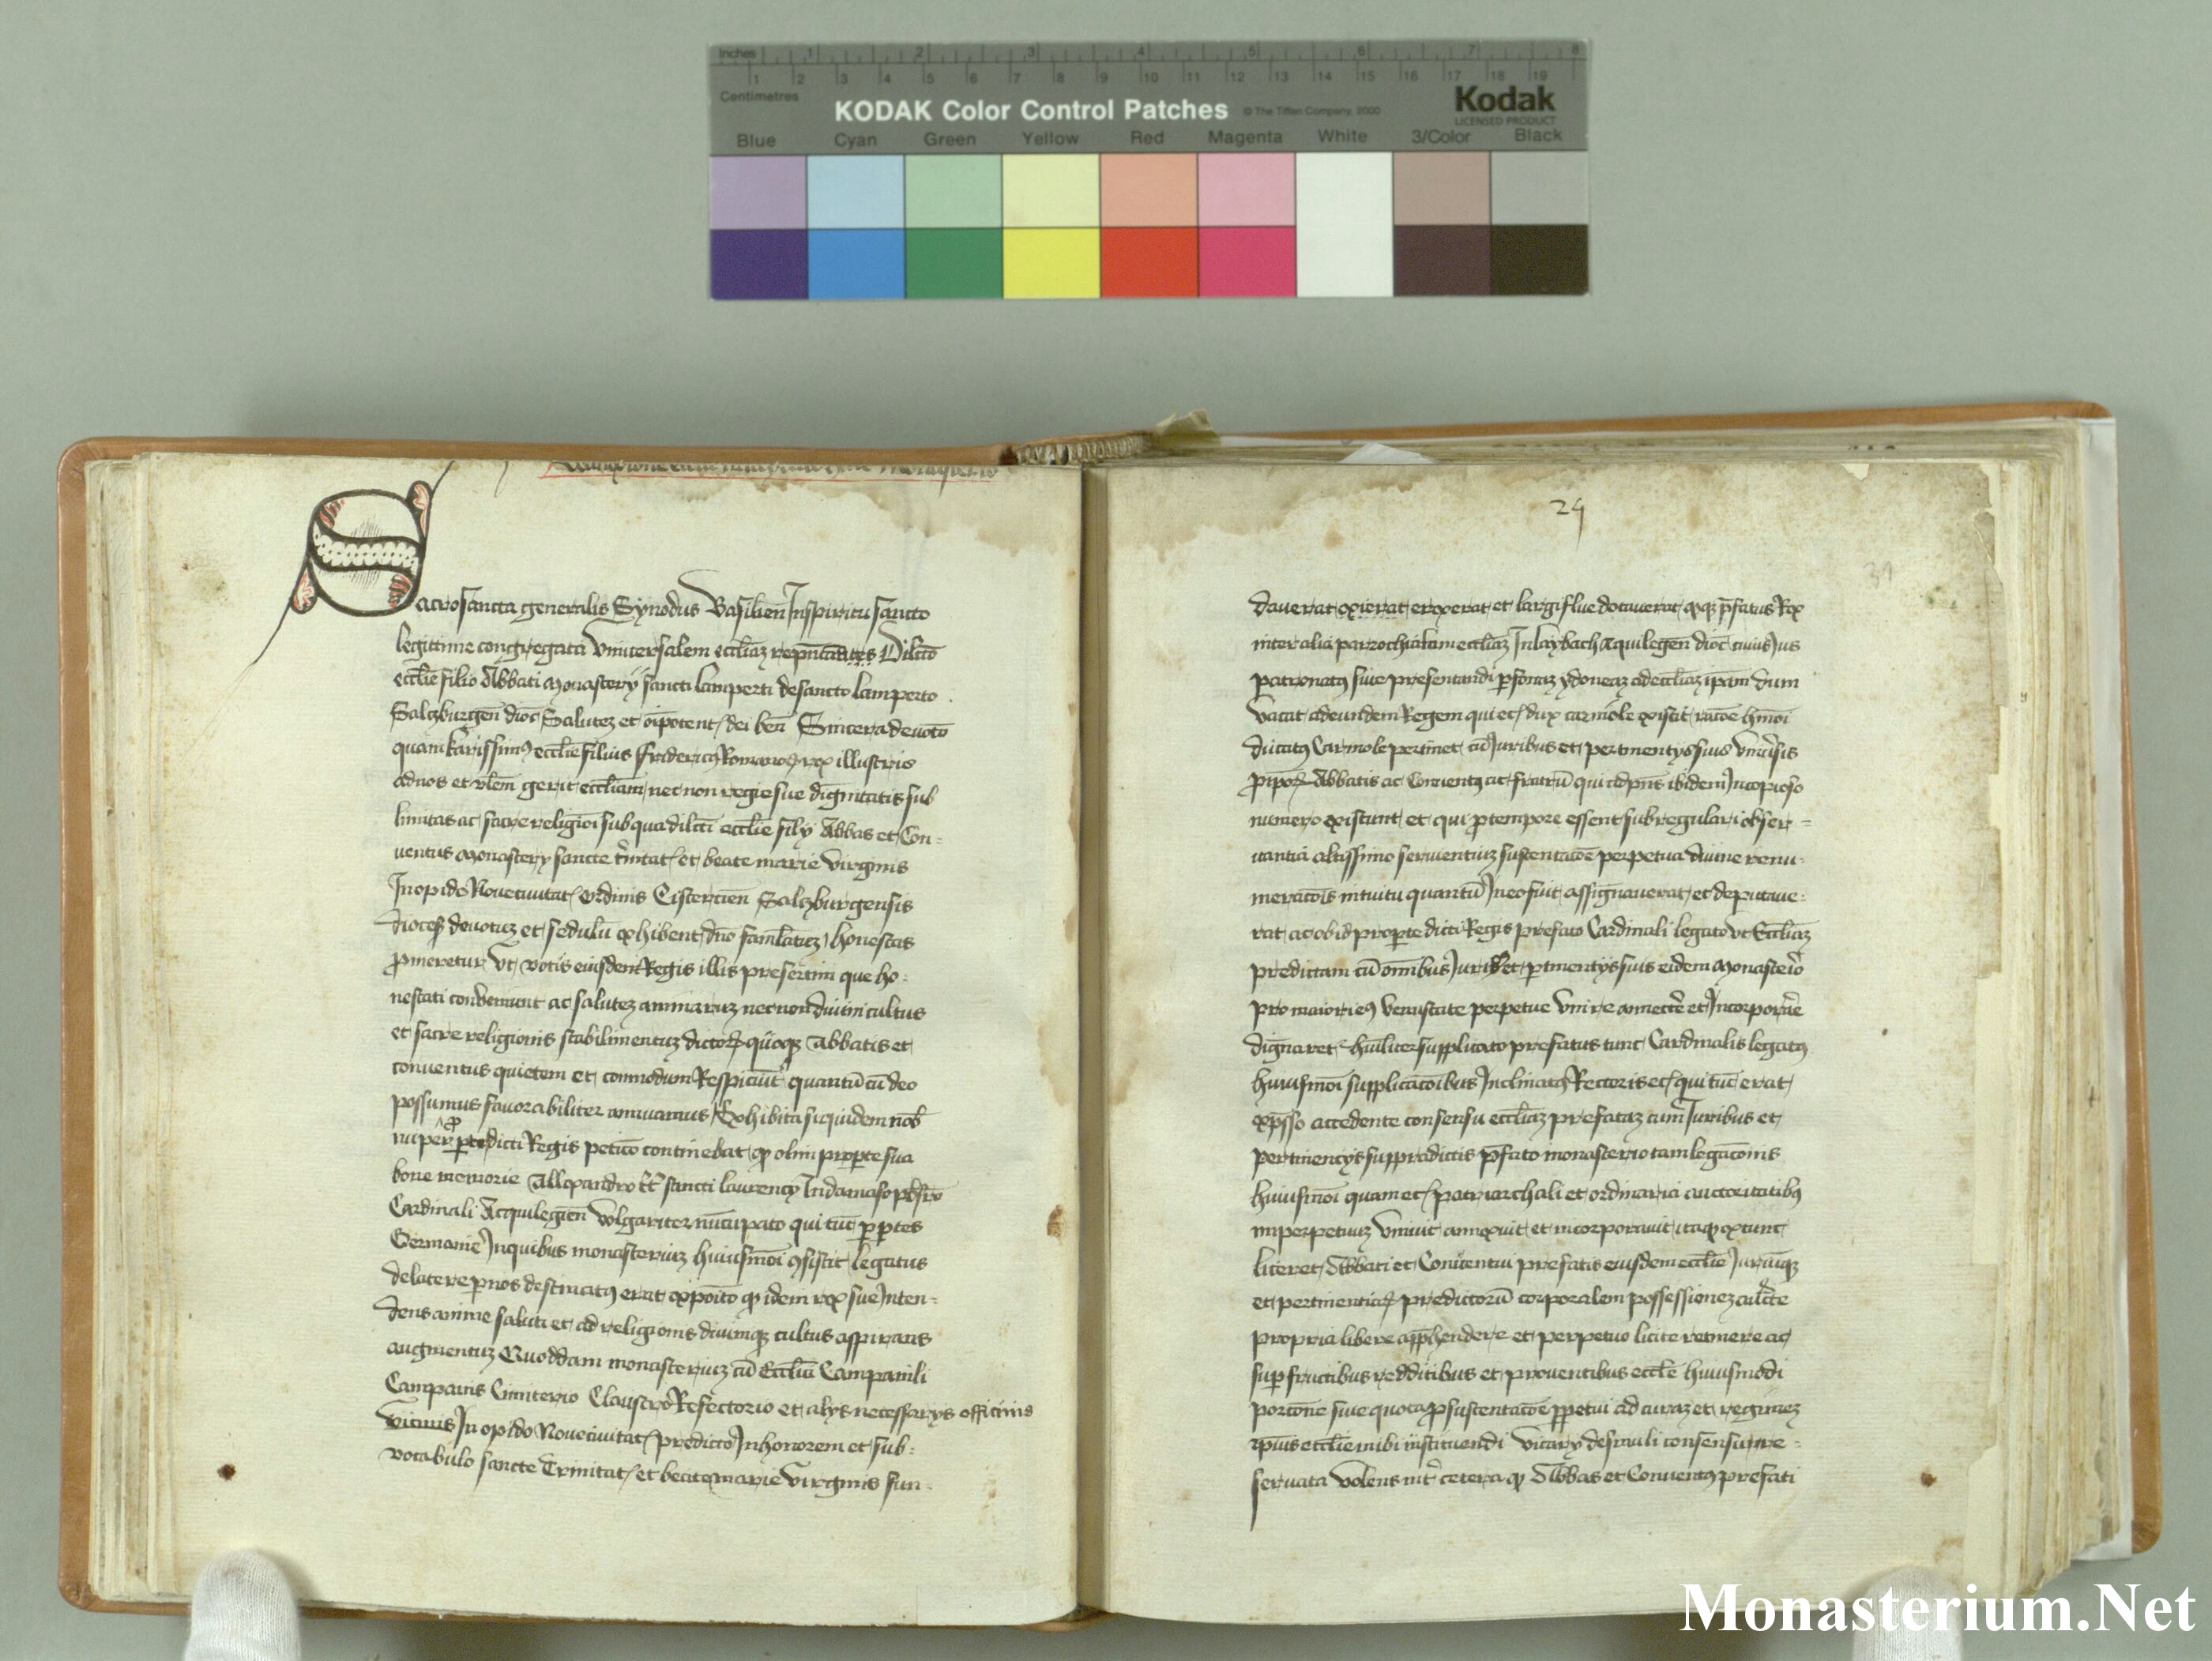 Inches 1 2 3 4 5 6 7 8
1 2 3 4 5 6 7 8 9 10 11 12 13 14 15 16 17 18 19
Centimetres
KODAK Color Control Patches © The Tiffen Company, 2000 Kodak
LICENSED PRODUCT
Blue Cyan Green Yellow Red Magenta White 3/Color Black
Sacrosancta generalis Synodus Basilien̄ Inspiritu sancto
legittime congregata Vniuersalem eccl̄iaz rep̄ntantes Dilc̄to
eccl̄ie filio Abbati Monastery sancti Lamperti de sancto Lamperto
Salczburgen̄ dioc̄ Salutez et oīpotent dei ben̄ Sincera deuot̄o
quam karissimꝰ eccl̄ie filius Fridericꝰ Romanoꝝ rex illustris
ad nos et vl̄em gerit eccl̄iam nec non regie sue dignitatis sub
limitas ac sacre religioī sub qua dilc̄ti eccl̄ie fily Abbas et Con-
uentus Monastery sancte t̄nitat et beate marie virginis
In opido Nouecivitat ordinis Cistercien̄ Salczburgensis
dioces̄ deuotuz et sedulū exhibent dn̄o faml̄atuz honestas
p̄meretur Vt votis eiusdem Regis illis presertim que ho-
nestati conveniunt ac salutez animaruz necnon diuini cultus
et sacre religionis stabilimentuz dictoꝝ quoqꝫ Abbatis et
conuentus quietem et commodum Respiciūt quantū cū deo
possumus fauorabiliter annuamus Exhibita siquidem nob̄
nuper p̄ pte dicti Regis petic̄o continebat qꝫ olim pro pte sua
bone memorie Allexandro tt̄ sancti laurency In damaso p̄bro
Cardinali Aquilegien̄ volgariter nūcupato qui tūc p ptes
Germanie In quibus monasteriuz huiusmōi ꝯsistit legatus
de latere p nos destinatꝰ erat expoīto qꝫ idem rex sue Inten-
dens anime saluti et ad religionis diuiniqꝫ cultus aspirans
augmentuz Quoddam monasteriuz cū Eccl̄ia Campanili
Campanis Cimiterio Claustro Refectorio et alys necessarys officinis
In opido Nouecivitat predicto In honorem et sub-
vocabulo sancte Trinitat et beate marie virginis fun-
24
31
dauerat erexerat et largiflue dotauerat qꝫ p̄fatus Rex
inter alia parrochialem eccl̄iaz In laybach Aquilegen̄ dioc̄ cuius Jus
patronatꝰ siue presentandi p̄sonaz ydoneaz ad eccl̄iaz ip̄am dum
vacat ad eundem Regem qui et dux carniole existit rac̄oe hmōi
ducatꝰ Carniole pertinet cū Juribus et pertinentys suis vniūsis
Abbatis ac Conuentꝰ ac fratrū qui ad pn̄s ibidem In copioso
numero existunt et qui p̄ tempore essent sub regulari obser-
uantia altissimo seruientiuz sustentac̄oe perpetua diuine renu-
merac̄ois intuitu quantū In eo fuit assignauerat et deputaue-
rat ac ob id pro pte dicti Regis prefato Cardinali legato vt Eccl̄iaz
predictam cū omībus Juribꝫ et ptinentys suis eidem Monasterio
pro maiori eiꝰ venustate perpetue vnire annectere et Incorporare
dignaret huīliter supplicato prefatus tunc Cardinalis legatꝰ
huiusmōi supplicac̄oibus Inclinatꝰ Rectoris ec̄ qui tūc erat
exp̄sso accedente consensu eccl̄iaz prefataz cum Juribus et
pertinencys suppradictis p̄fato monasterio tam legac̄onis
huiusmōi quam et patriarchali et ordinaria auctoritatibꝰ
imperpetuuz vniuit annexuit et incorporauit ita qꝫ extunc
liceret Abbati et Conuentui prefatis eiusdem eccl̄ie Juriūqꝫ
et pertinentiaꝝ predictorū corporalem possessionez auc̄te
propria libere app̄hendere et perpetuo licite retinere ac
sup fructibus redditibus et prouentibus eccl̄e huiusmodi
porc̄one siue quota p̄ sustentac̄oe p̄petui ad curaz et regimez
ip̄ius eccl̄ie inibi instituendi vicary de simili consensu re-
seruata volens int̄ cetera qꝫ Abbas et Conuentꝰ prefati
Monasterium.Net